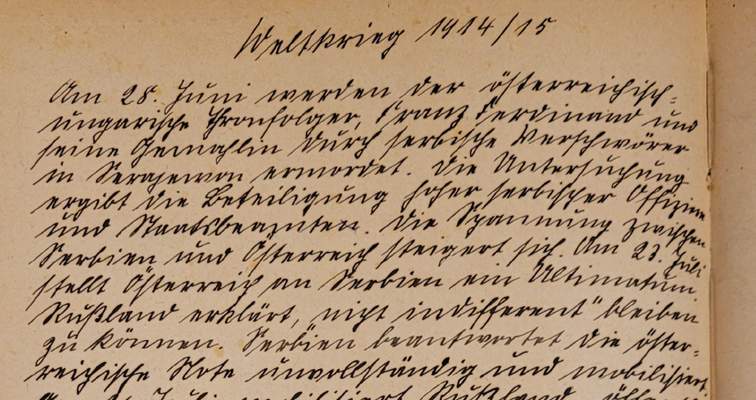 Weltkrieg 1914/15
Am 28. Juni werden der österreichisch-
ungarische Thronfolger, Franz Ferdinand und
seine Gemahlin durch serbische Verschwörer
in Serajewon ermordet. Die Untersuchung
ergibt die Beteiligung hoher serbischer Offiziere
und Staatsbeamten. Die Spannung zwischen
Serbien und Österreich steigert sich. Am 23. Juli
stellt Österreich an Serbien ein Ultimatum.
Rußland erklärt, nicht indifferent" bleiben
zu können. Serbien beantwortet die öster-
reichische Note unvollständig und mobilisiert
Juli mobilisiert Rußland